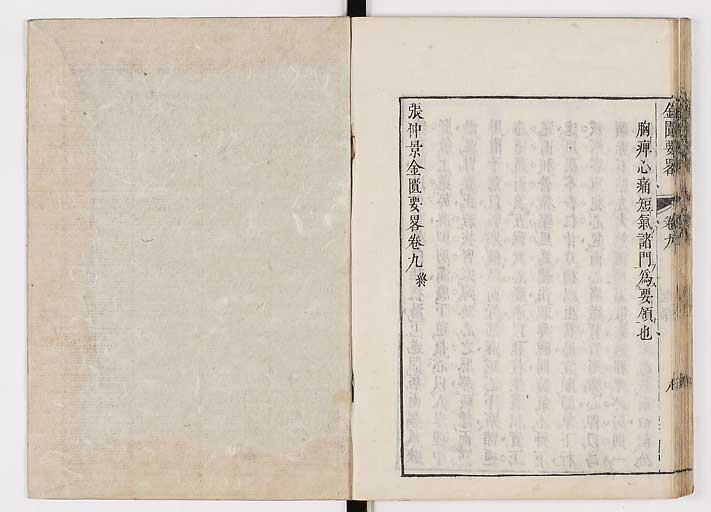 金匱要畧 卷九
胸痺心痛短氣諸門爲要領也
張仲景金匱要畧卷九終